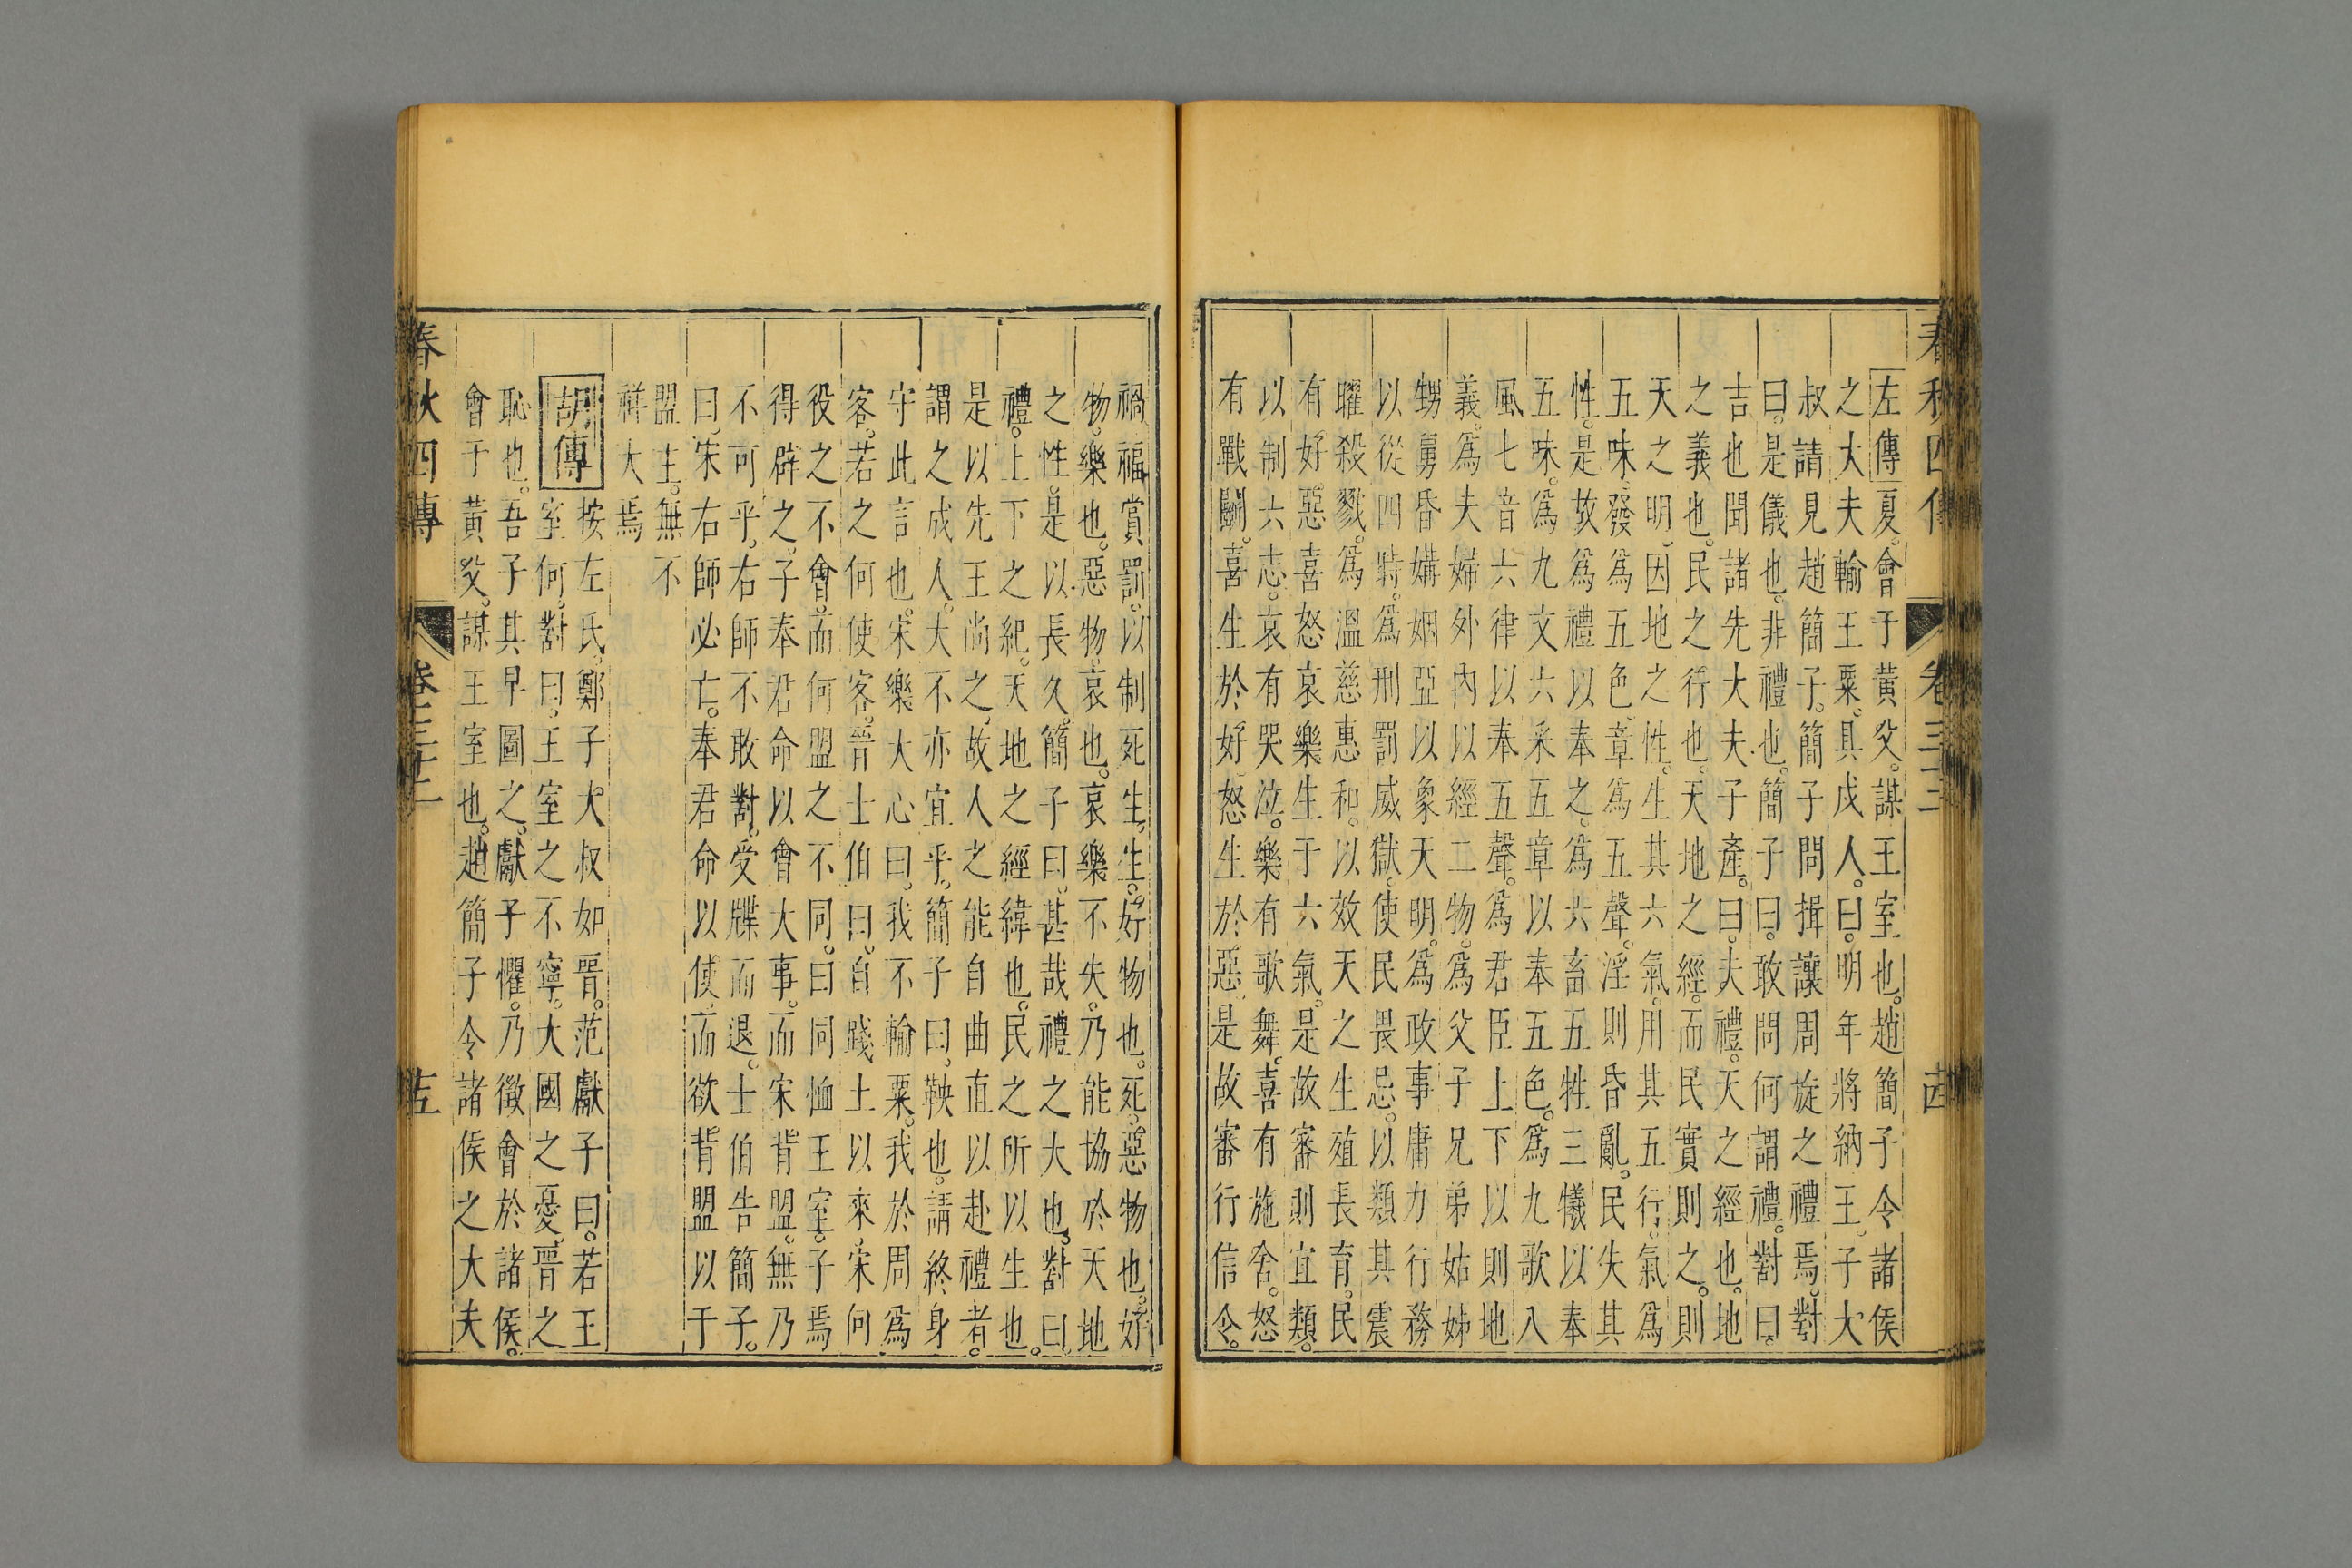 左傳夏。會于黃父。謀王室也。趙簡子令諸侯
之大夫輸王粟。具戍人。曰。明年將納王。子大
叔請見趙簡子。簡子問揖讓周旋之禮焉。對
曰。是儀也。非禮也。簡子曰。敢問何謂禮。對曰。
吉也聞諸先大夫子產。曰。夫禮。天之經也。地
之義也。民之行也。天地之經。而民實則之。則
天之明。因地之性。生其六氣。用其五行。氣為
五味。發為五色。章為五聲。淫則昏亂。民失其
性。是故為禮以奉之。為六畜五牲三犧以奉
五味。為九文六采五章以奉五色。為九歌八
風七音六律以奉五聲。為君臣上下以則地
義。為夫婦外內以經二物。為父子兄弟姑姊
甥舅昏媾姻亞以象天明。為政事庸力行務
以從四時。為刑罰威獄。使民畏忌。以類其震
曜殺戮。為溫慈惠和。以效天之生殖長育。民
有好惡喜怒哀樂生于六氣。是故審則宜類。
以制六志。哀有哭泣。樂有歌舞。喜有施舍。怒
有戰鬭。喜生於好。怒生於惡。是故審行信令。
禍福賞罰。以制死生。生。好物也。死。惡物也。好
物。樂也。惡物。哀也。哀樂不失。乃能協於天地
之性。是以長久。簡子曰。甚哉禮之大也。對曰。
禮。上下之紀。天地之經緯也。民之所以生也。
是以先王尚之。故人之能自曲直以赴禮者。
謂之成人。大不亦宜乎。簡子曰。鞅也。請終身
守此言也。宋樂大心曰。我不輸粟。我於周為
客。若之何使客。晉士伯曰。自踐土以來。宋何
役之不會。而何盟之不同。曰同恤王室。子焉
得辟之。子奉君命以會大事。而宋背盟。無乃
不可乎。右師不敢對。受牒而退。士伯告簡子。
曰。宋右師必亡。奉君命以使。而欲背盟以于
盟主。無不
祥大焉
胡傳按左氏。鄭子大叔如晉。范獻子曰。若王
室何。對曰。王室之不寧。大國之憂。晉之
恥也。吾子其早圖之。獻子懼。乃徵會於諸侯。
會于黃父。謀王室也。趙簡子令諸侯之大夫
春秋四傳 卷三十二 左